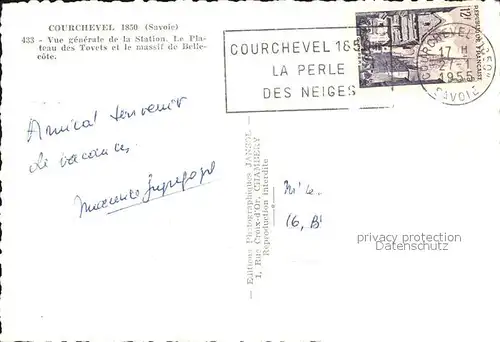 COURCHEVEL 1850 (Savoie)
433 - Vue générale de la Station. Le Pla-
teau des Tovets et le massif de Belle-
côte.
COURCHEVEL 185
LA PERLE
DES NEIGES
12F
COURCHEVEL 1850
17 H
27-1
1955
SAVOIE
Amical souvenir
de vacances
Editions Photographiques JANSOL
1, Rue Croix-d'Or, CHAMBÉRY
Reproduction interdite
16, Bd
privacy protection
Datenschutz